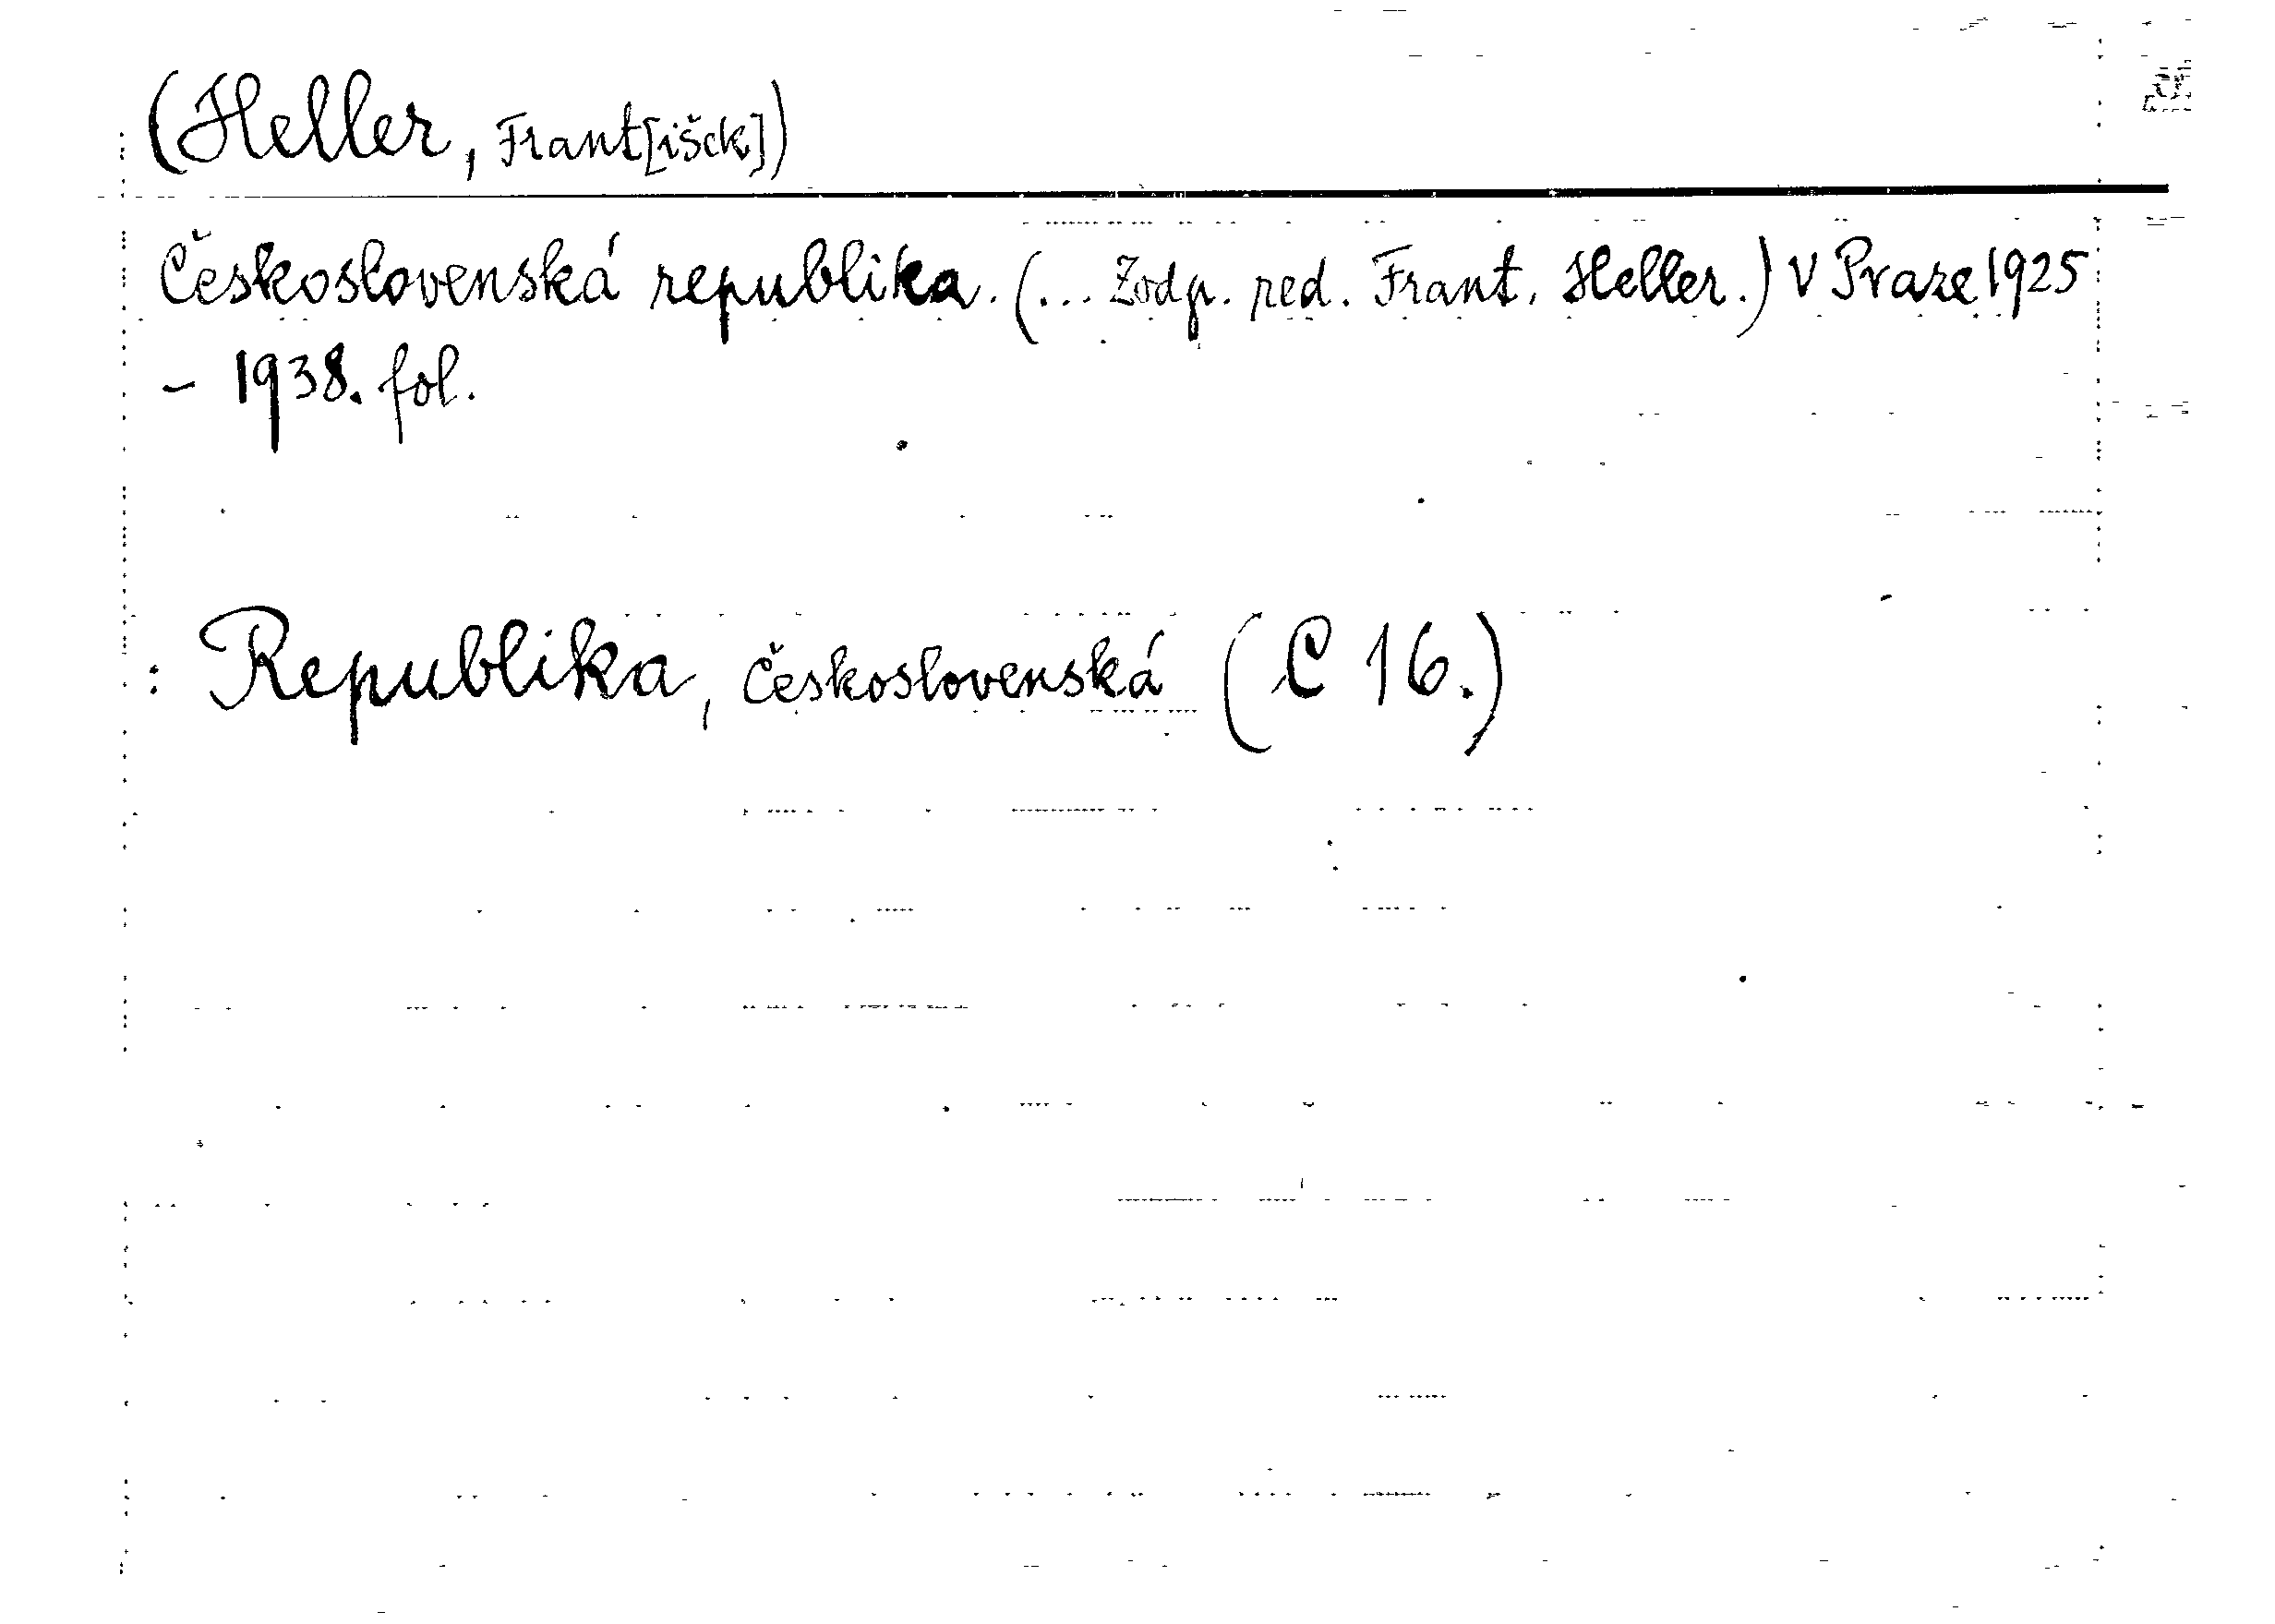 (Heller, Frant[išek])
Československá republika. (... Zodp. red. Frant. Heller.) V Praze 1925
- 1938. fol.
: Republika, Československá (C 16.)